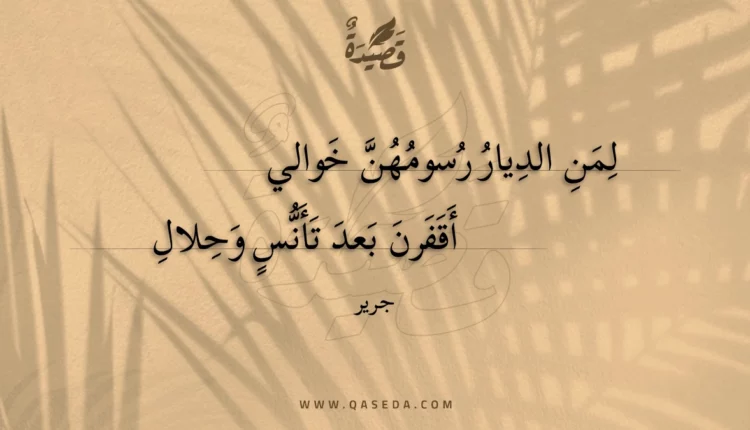 قَصِيْدَةٌ
لِمَنِ الدِيارُ رُسومُهُنَّ خَوالي
أَقَفَرنَ بَعدَ تَأَنُّسٍ وَحِلالِ
جرير
WWW.QASEDA.COM